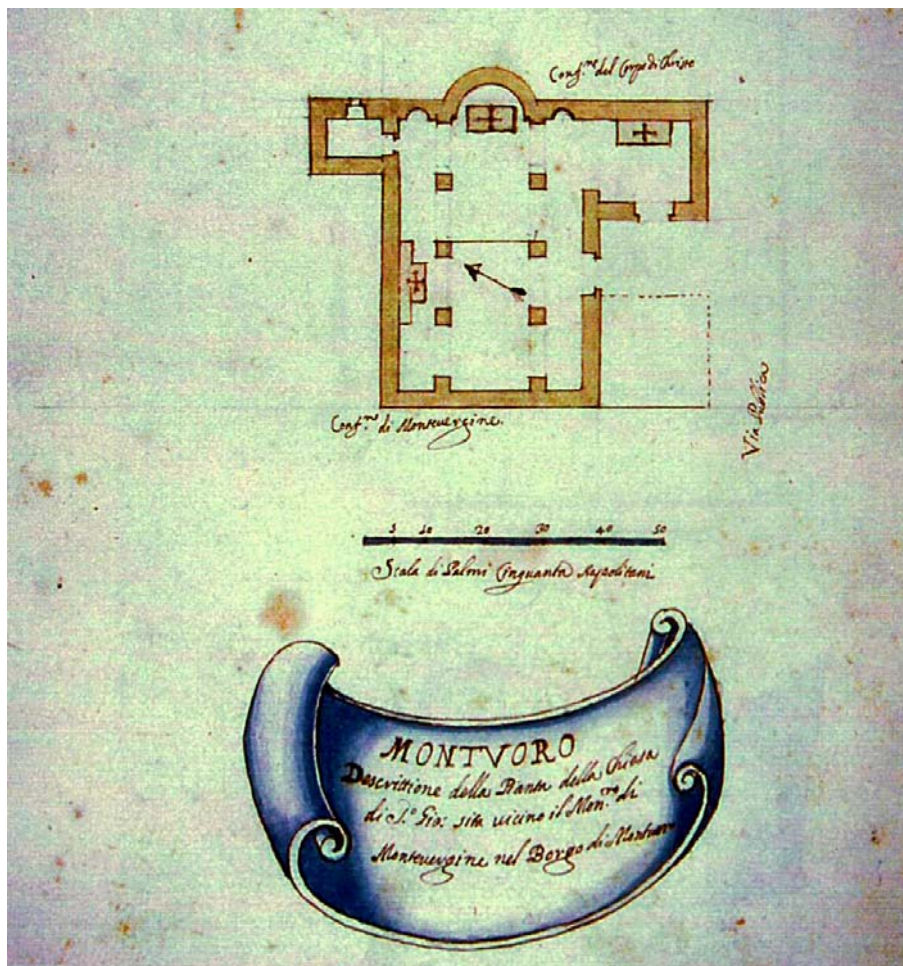 Conf.ne del Corpo di Christo
Conf.no di Montevergine.
Via Publica
5 10 20 30 40 50
Scala di Palmi Cinquanta Napolitani
MONTVORO
Descrittione della Pianta della Chiesa
di S.o Gio: sita vicino il Mon.ro di
Montevergine nel Borgo di Montuoro